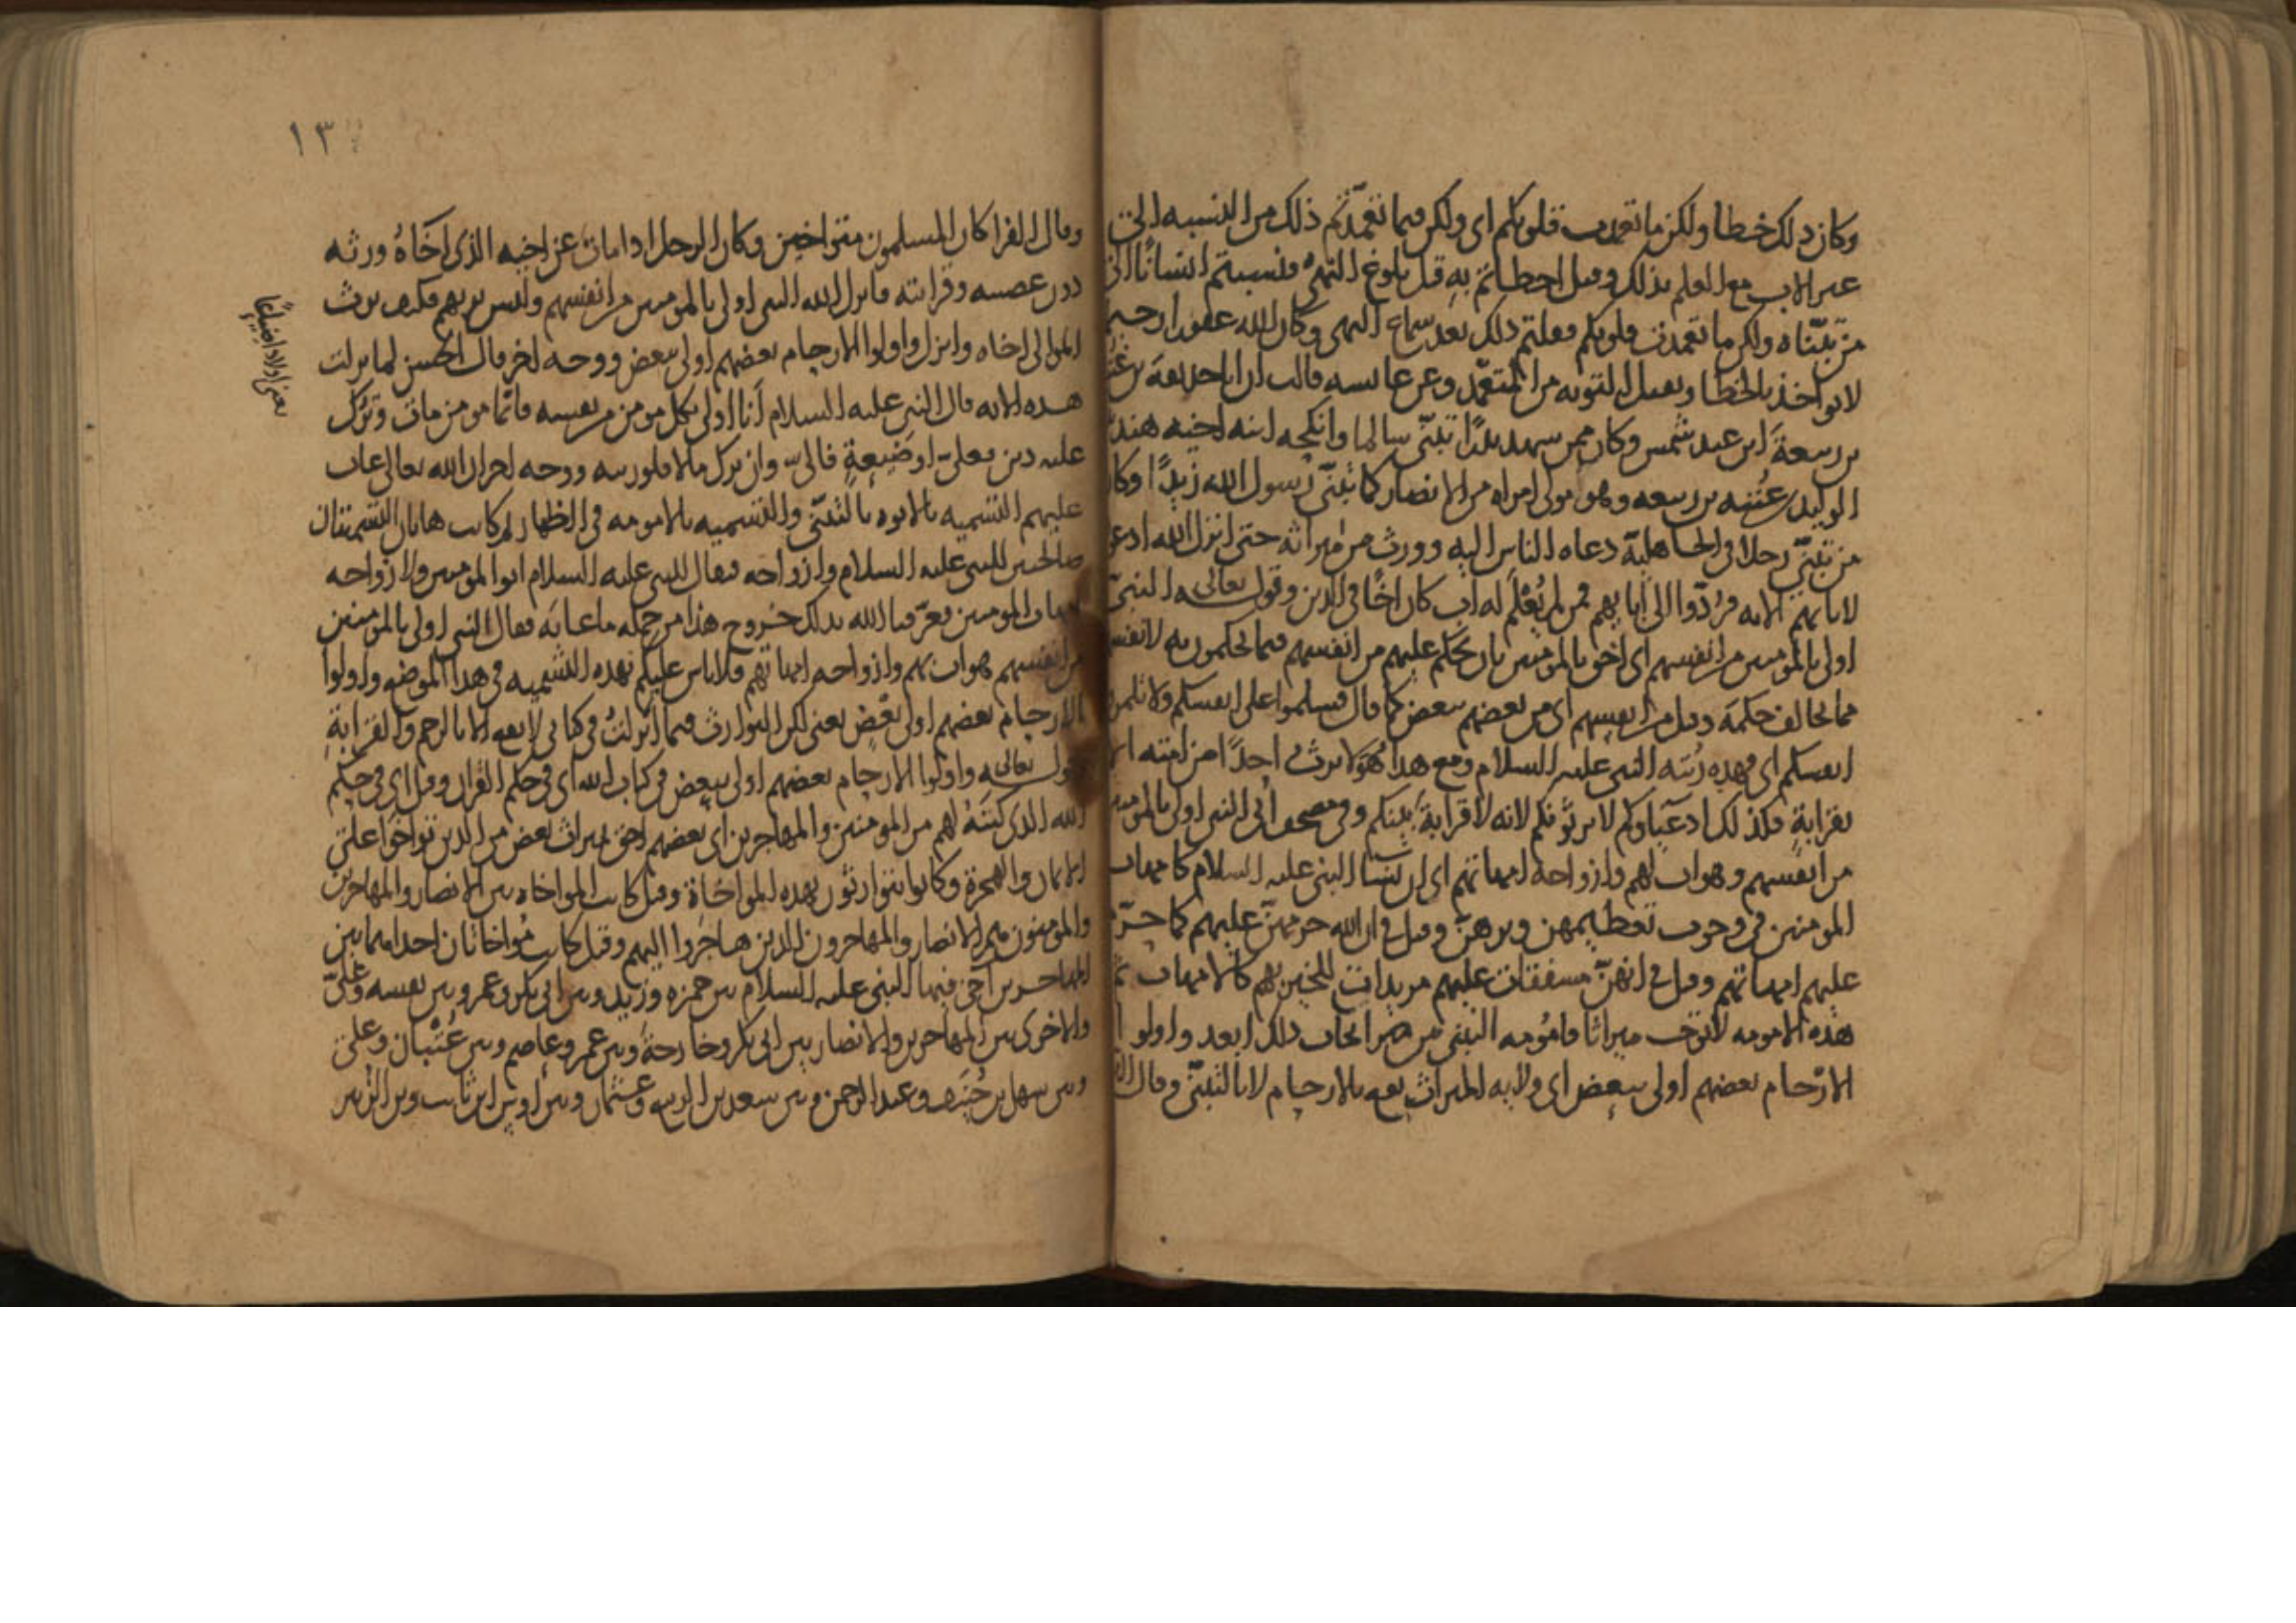 وكان ذلك خطا ولكن ما تعمدت قلوبكم اى ولكن فيما تعمدتم ذلك من النسبه الى
غير الاب مع العلم بذلك وقيل اخطاتم به قبل بلوغ النهى فنسبتم انسانا الى
من تبناه ولكن ما تعمدت قلوبكم فعلتم ذلك بعد سماع النهى وكان الله غفورا رحيما
لا يواخذ بالخطا ويقبل التوبه من المتعمد وعن عايشه قالت ان ابا حذيفة بن عتبة
بن ربيعة ابن عبد شمس وكان ممن شهد بدرا تبنى سالما وانكحه ابنة اخيه هند بنت
الوليد بن عتبه بن ربيعه وهو مولى امراه من الانصار كما تبنى رسول الله زيدا وكان
من تبنى رجلا فى الجاهلية دعاه الناس اليه وورث من ميراثه حتى انزل الله ادعوهم
لابايهم الايه فردوا الى ابايهم فمن لم يعلم له اب كان اخا فى الدين وقوله تعالى النبى
اولى بالمومنين من انفسهم اى احق بالمومنين بان يحكم عليهم من انفسهم فيما يحكمون به لانفسهم
مما يخالف حكمه وقيل من انفسهم اى من بعضهم ببعض كما قال فسلموا على انفسكم ولا تلمزوا
انفسكم اى فهذه رتبه النبى عليه السلام ومع هذا هو لا يرث احدا من امته
بقرابة فكذلك ادعياوكم لا يرثونكم لانه لا قرابة بينكم وفى مصحف ابى النبى اولى بالمومنين
من انفسهم وهو اب لهم وازواجه امهاتهم اى ان نسا النبى عليه السلام كامهات
المومنين فى وجوب تعظيمهن وبرهن وقيل فى ان الله حرمهن عليهم كما حرم
عليهم امهاتهم وقيل فى انهن مشفقات عليهم مريدات للخير بهم كالامهات ثم
هذه الامومه لا توجب ميراثا فامومه التبنى من غير ايجاب ذلك ابعد واولو
الارحام بعضهم اولى ببعض اى ولايه الميراث تقع بالارحام لا بالتبنى وقال
١٣
وقال الفرا كان المسلمون متواخين وكان الرجل اذا مات عن اخيه الذى اخاه ورثه
دون عصبته وقرابته فانزل الله النبى اولى بالمومنين من انفسهم وليس يرثهم فكيف يرث
المولى اخاه وانزل واولوا الارحام بعضهم اولى ببعض ووجه اخر قال الحسن لما نزلت
هذه الايه قال النبى عليه السلام انا اولى بكل مومن من نفسه فايما مومن مات وترك
عليه دين فعلى او ضيعة فالى وان ترك مالا فلورثته ووجه اخر ان الله تعالى عاب
عليهم التسميه بالابوه بالتبنى والتسميه بالامومه فى الظهار ثم كانت هاتان التسميتان
صالحتين للنبى عليه السلام وازواجه فيقال للنبى عليه السلام ابو المومنين ولازواجه
امهات المومنين فعرفنا الله بذلك خروج هذا من جمله ما عابه فقال النبى اولى بالمومنين
من انفسهم وهو اب لهم وازواجه امهاتهم فلا باس عليكم بهذه التسميه فى هذا الموضع واولوا
الارحام بعضهم اولى ببعض يعنى لكن التوارث فيما انزلت فى كتابى لا يقع الا بالرحم والقرابة
قوله تعالى واولوا الارحام بعضهم اولى ببعض فى كتاب الله اى فى حكم القران وقيل اى فى حكم
الله الذى كتبه لهم من المومنين والمهاجرين اى بعضهم احق بميراث بعض من الذين تواخوا على
الايمان والهجرة وكانوا يتوارثون بهذه المواخاة وقيل كانت المواخاه بين الانصار والمهاجرين
والمومنون هم الانصار والمهاجرون الذين هاجروا اليهم وقيل كانت مواخاتان احداهما بين
المهاجرين اخى فيها النبى عليه السلام بين حمزه وزيد وبين ابى بكر وعمر وبين نفسه وعلى
والاخرى بين المهاجرين والانصار بين ابى بكر وخارجة وبين عمر وعاصم وبين عتبان وعلى
وبين سهل بن حنيف وعبد الرحمن وبين سعد بن الربيع وعثمان وبين اوس ابن ثابت وبين الزبير
يعنى اولادا ضياعا